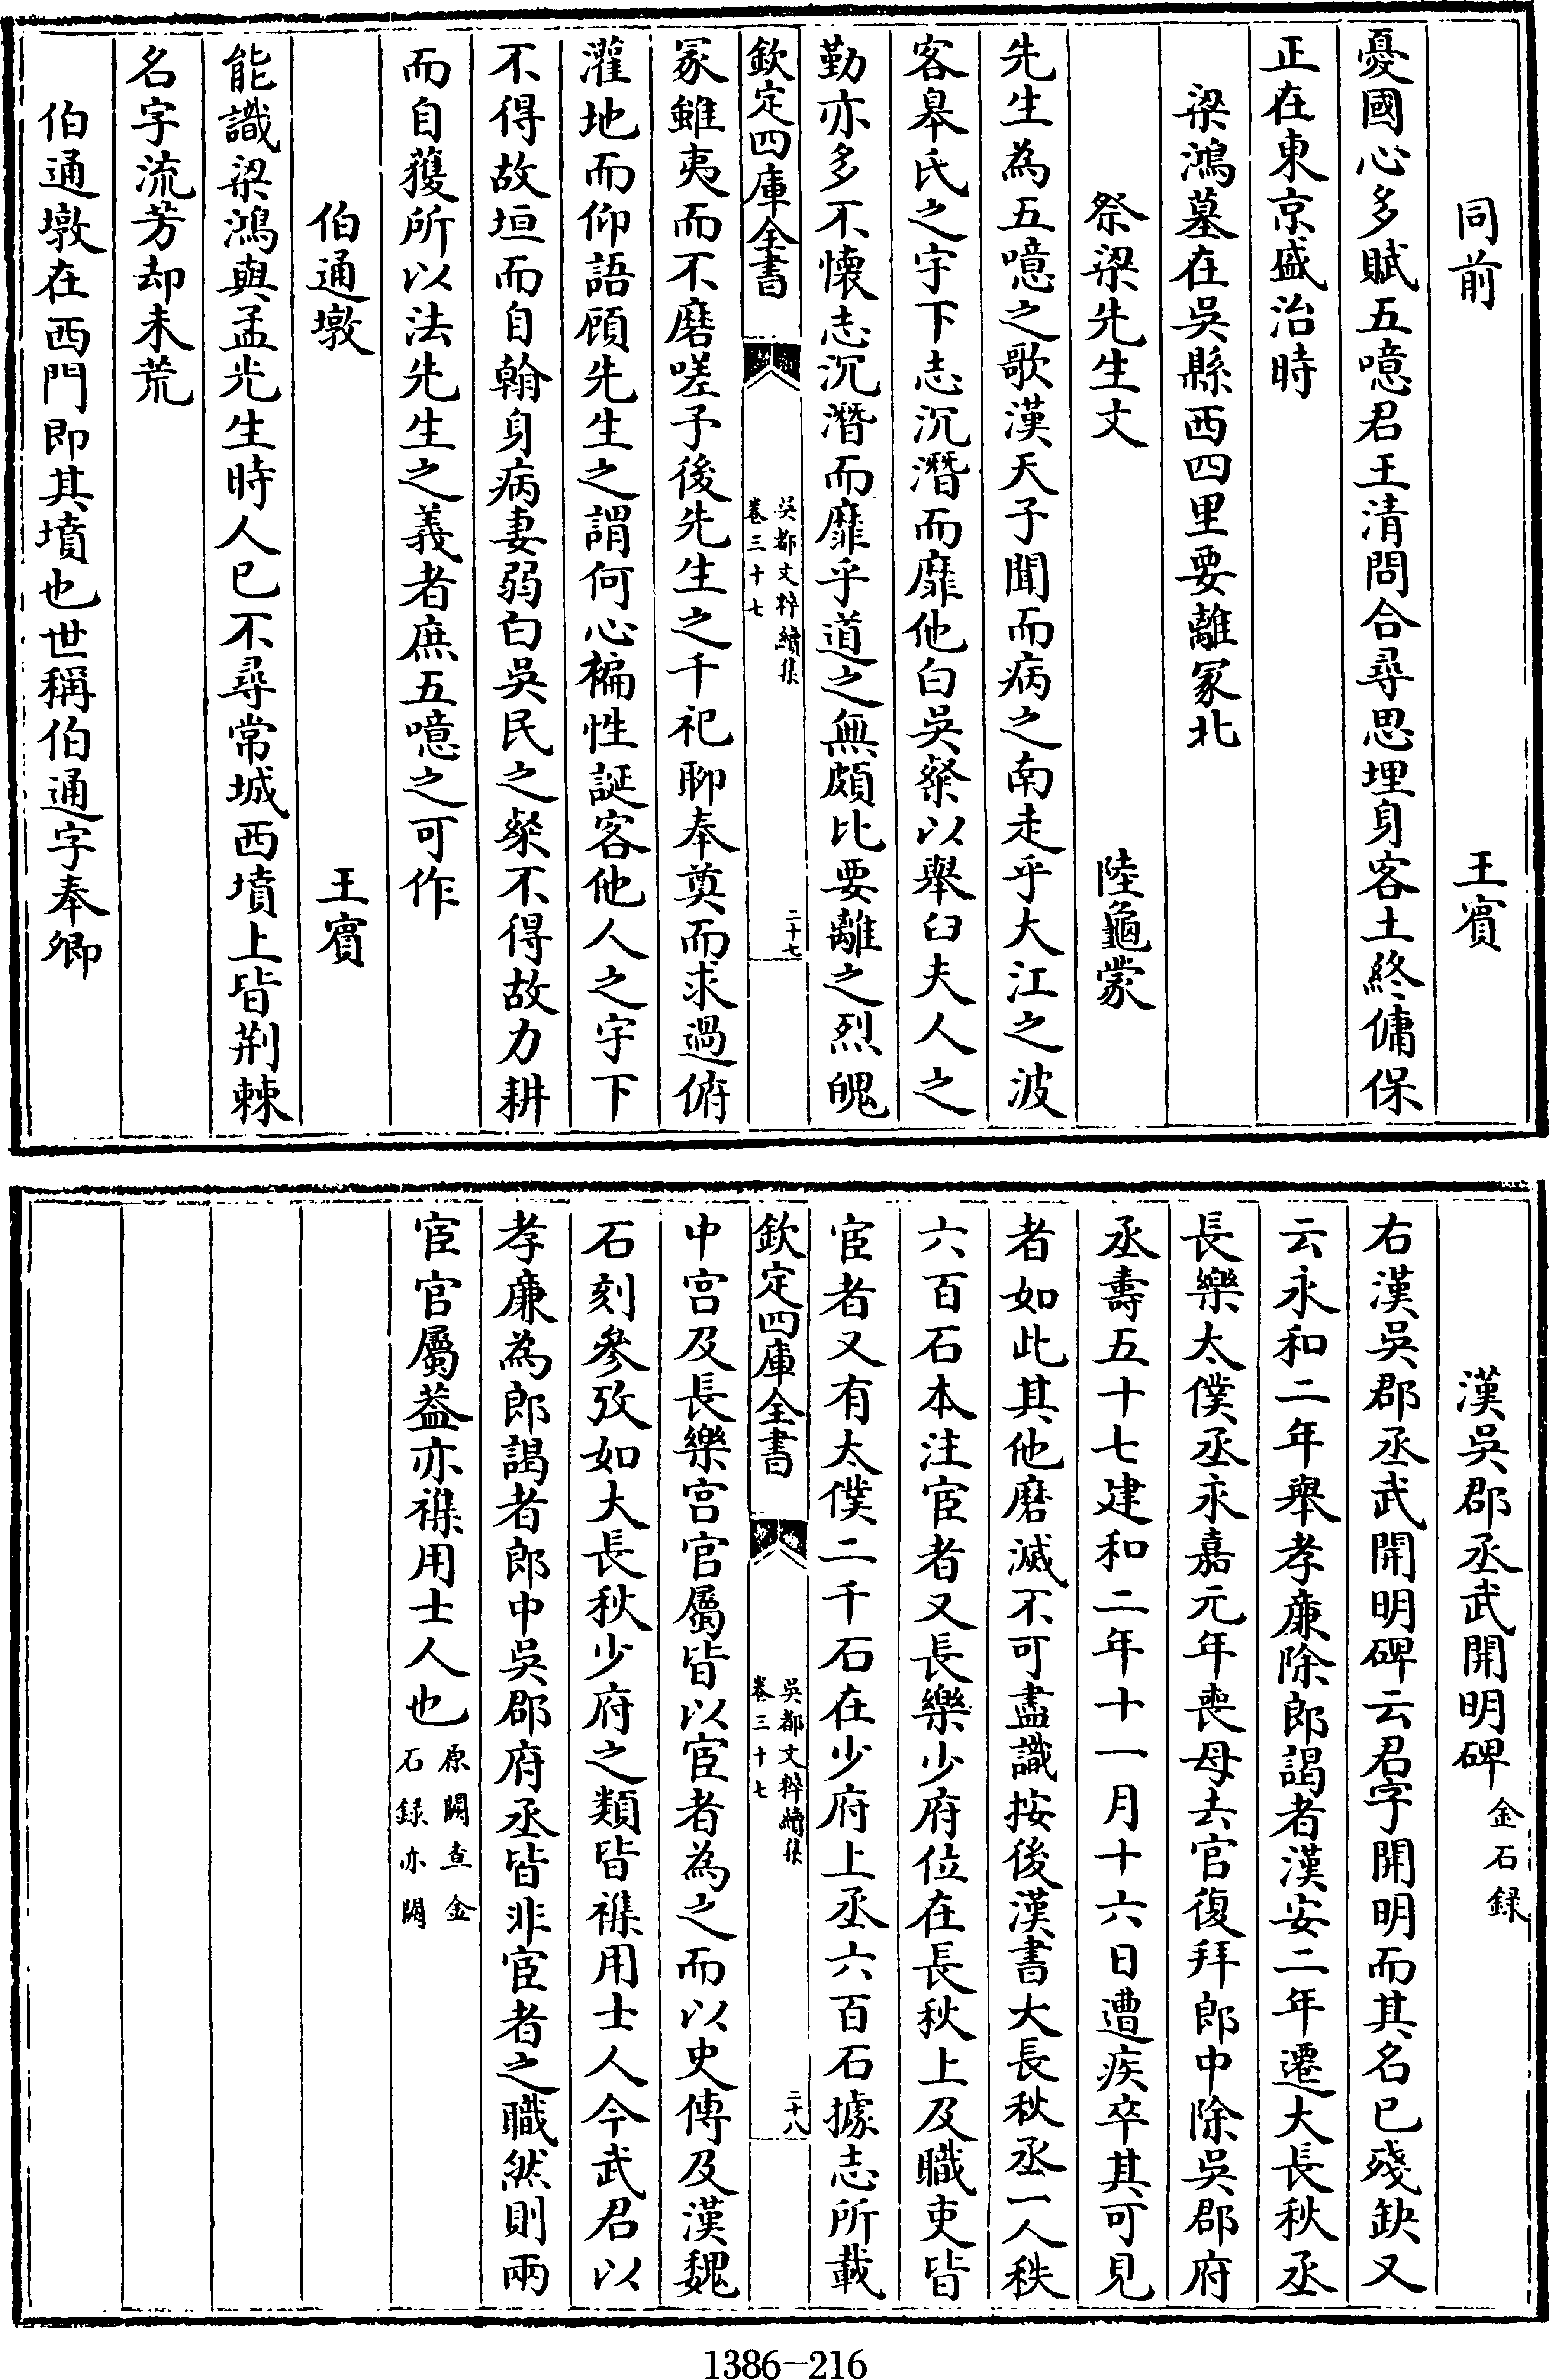 同前　王賓
憂國心多賦五噫君王清問合尋思埋身客土終傭保
正在東京盛治時
梁鴻墓在吳縣西四里要離冢北
祭梁先生文　陸龜蒙
先生為五噫之歌漢天子聞而病之南走乎大江之波
客皋氏之宇下志沉潛而靡他白吳粲以舉臼夫人之
勤亦多不懷志沉潛而靡乎道之無頗比要離之烈魄
欽定四庫全書　吳都文粹續集　卷三十七　二十七
冢雖夷而不磨嗟予後先生之千祀聊奉奠而求過俯
灌地而仰語顧先生之謂何心褊性誕客他人之宇下
不得故垣而自翰身病妻弱白吳民之粲不得故力耕
而自獲所以法先生之義者庶五噫之可作
伯通墩　王賓
能識梁鴻與孟光生時人已不尋常城西墳上皆荆棘
名字流芳却未荒
伯通墩在西門即其墳也世稱伯通字奉卿
漢吳郡丞武開明碑 金石録
右漢吳郡丞武開明碑云君字開明而其名已殘缺又
云永和二年舉孝廉除郎謁者漢安二年遷大長秋丞
長樂太僕丞永嘉元年喪母去官復拜郎中除吳郡府
丞壽五十七建和二年十一月十六日遭疾卒其可見
者如此其他磨滅不可盡識按後漢書大長秋丞一人秩
六百石本注宦者又長樂少府位在長秋上及職吏皆
宦者又有太僕二千石在少府上丞六百石據志所載
欽定四庫全書　吳都文粹續集　卷三十七　二十八
中宫及長樂宫官屬皆以宦者為之而以史傳及漢魏
石刻參攷如大長秋少府之類皆襍用士人今武君以
孝廉為郎謁者郎中吳郡府丞皆非宦者之職然則兩
宦官屬葢亦襍用士人也 原闕查金石録亦闕
1386—216